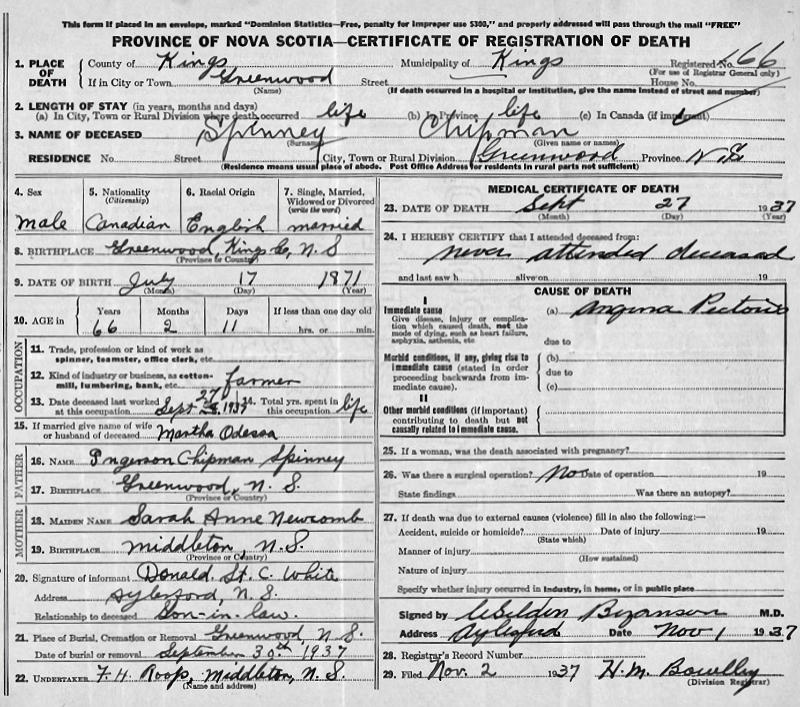 This form if placed in an envelope, marked "Dominion Statistics—Free, penalty for improper use $300," and properly addressed will pass through the mail "FREE"
PROVINCE OF NOVA SCOTIA—CERTIFICATE OF REGISTRATION OF DEATH
1. PLACE OF DEATH County of Kings Municipality of Kings Registered No. 166
(For use of Registrar General only)
If in City or Town Greenwood Street House No.
(Name) (If death occurred in a hospital or institution, give the name instead of street and number)
2. LENGTH OF STAY (in years, months and days)
(a) In City, Town or Rural Division where death occurred life (b) In Province life (c) In Canada (if immigrant)
3. NAME OF DECEASED Spinney Chipman
(Surname) (Given name or names)
RESIDENCE No. Street City, Town or Rural Division Greenwood Province N.S
(Residence means usual place of abode. Post Office Address for residents in rural parts not sufficient)
4. Sex 5. Nationality (Citizenship) 6. Racial Origin 7. Single, Married, Widowed or Divorced (write the word)
male Canadian English married
8. BIRTHPLACE Greenwood, Kings Co, N. S
(Province or Country)
9. DATE OF BIRTH July 17 1871
(Month) (Day) (Year)
10. AGE in Years Months Days If less than one day old
66 2 11 hrs. or min.
OCCUPATION
11. Trade, profession or kind of work as spinner, teamster, office clerk, etc.
12. Kind of industry or business, as cotton-mill, lumbering, bank, etc. farmer
13. Date deceased last worked at this occupation Sept 27 1937 14. Total yrs. spent in this occupation life
15. If married give name of wife or husband of deceased Martha Odessa
FATHER
16. NAME Ingerson Chipman Spinney
17. BIRTHPLACE Greenwood, N. S.
(Province or Country)
MOTHER
18. MAIDEN NAME Sarah Anne Newcomb
19. BIRTHPLACE Middleton, N.S.
(Province or Country)
20. Signature of informant Donald St. C. White
Address Aylesford, N. S.
Relationship to deceased Son-in-law.
21. Place of Burial, Cremation or Removal Greenwood, N. S.
Date of burial or removal September 30th 1937
22. UNDERTAKER F. H. Roop, Middleton, N. S.
(Name and address)
MEDICAL CERTIFICATE OF DEATH
23. DATE OF DEATH Sept 27 1937
(Month) (Day) (Year)
24. I HEREBY CERTIFY that I attended deceased from:
never attended deceased
and last saw h alive on 19
CAUSE OF DEATH
I
Immediate cause (a) Angina Pectoris
Give disease, injury or complication which caused death, not the mode of dying, such as heart failure, asphyxia, asthenia, etc due to
Morbid conditions, if any, giving rise to immediate cause (stated in order proceeding backwards from immediate cause). (b)
due to
(c)
II
Other morbid conditions (if important) contributing to death but not causally related to immediate cause.
25. If a woman, was the death associated with pregnancy?
26. Was there a surgical operation? No Date of operation 19
State findings Was there an autopsy?
27. If death was due to external causes (violence) fill in also the following:—
Accident, suicide or homicide? Date of injury 19
(State which)
Manner of injury
(How sustained)
Nature of injury
Specify whether injury occurred in industry, in home, or in public place
Signed by Bezanson M.D.
Address Aylesford Date Nov 1 1937
28. Registrar's Record Number
29. Filed Nov. 2 1937 H.M. Bowlby
(Division Registrar)